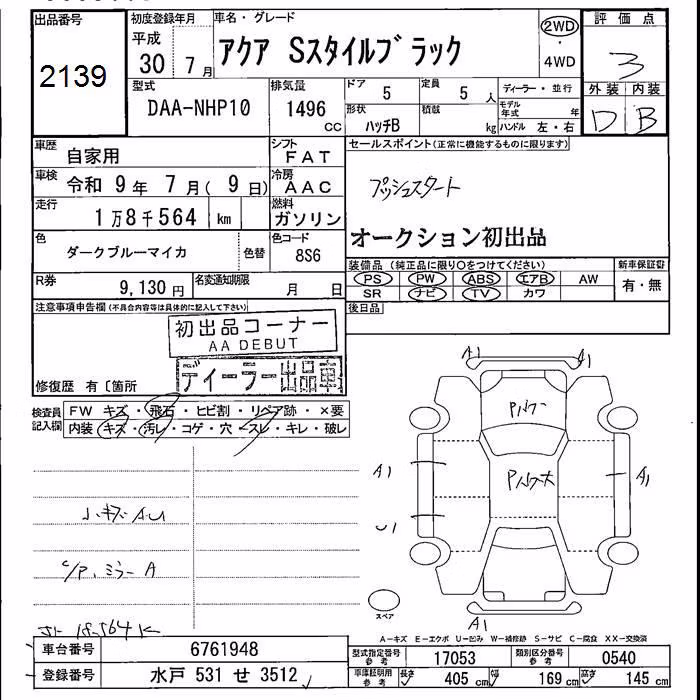 出品番号 初度登録年月 車名・グレード 評価点
2139
平成 30 7月 アクア Sスタイルブラック 2WD・4WD 3
型式 排気量 ドア 定員 ディーラー・並行 外装 内装
DAA-NHP10 1496 CC 5 5人 モデル年式 年 D B
形状 積載
ハッチB kg ハンドル 左・右
車歴 自家用 シフト FAT セールスポイント(正常に機能するものに限ります)
車検 令和 9年 7月(9日) 冷房 AAC プッシュスタート
走行 1万8千564 km 燃料 ガソリン オークション初出品
色 ダークブルーマイカ 色替 色コード 8S6
装備品(純正品に限り○をつけてください) 新車保証書
R券 9,130円 名変通知期限 月 日 PS PW ABS エアB AW 有・無
SR ナビ TV カワ
注意事項申告欄(不具合内容等は具体的に記入して下さい) 後日品
初出品コーナー
AA DEBUT
ディーラー出品車
修復歴 有〔箇所
検査員記入欄 FW キズ・飛石・ヒビ割・リペア跡・×要
内装 キズ・汚レ・コゲ・穴・スレ・キレ・破レ
A1 A1
A1 A1
U1
小キズ A.U
ミラーA
スペア
A1
18,564K
A-キズ E-エクボ U-凹み W-補修跡 S-サビ C-腐食 XX-交換済
車台番号 6761948 型式指定番号 参考 17053 類別区分番号 参考 0540
登録番号 水戸 531 せ 3512 車庫証明用 参考 長さ 405 cm 幅 169 cm 高さ 145 cm